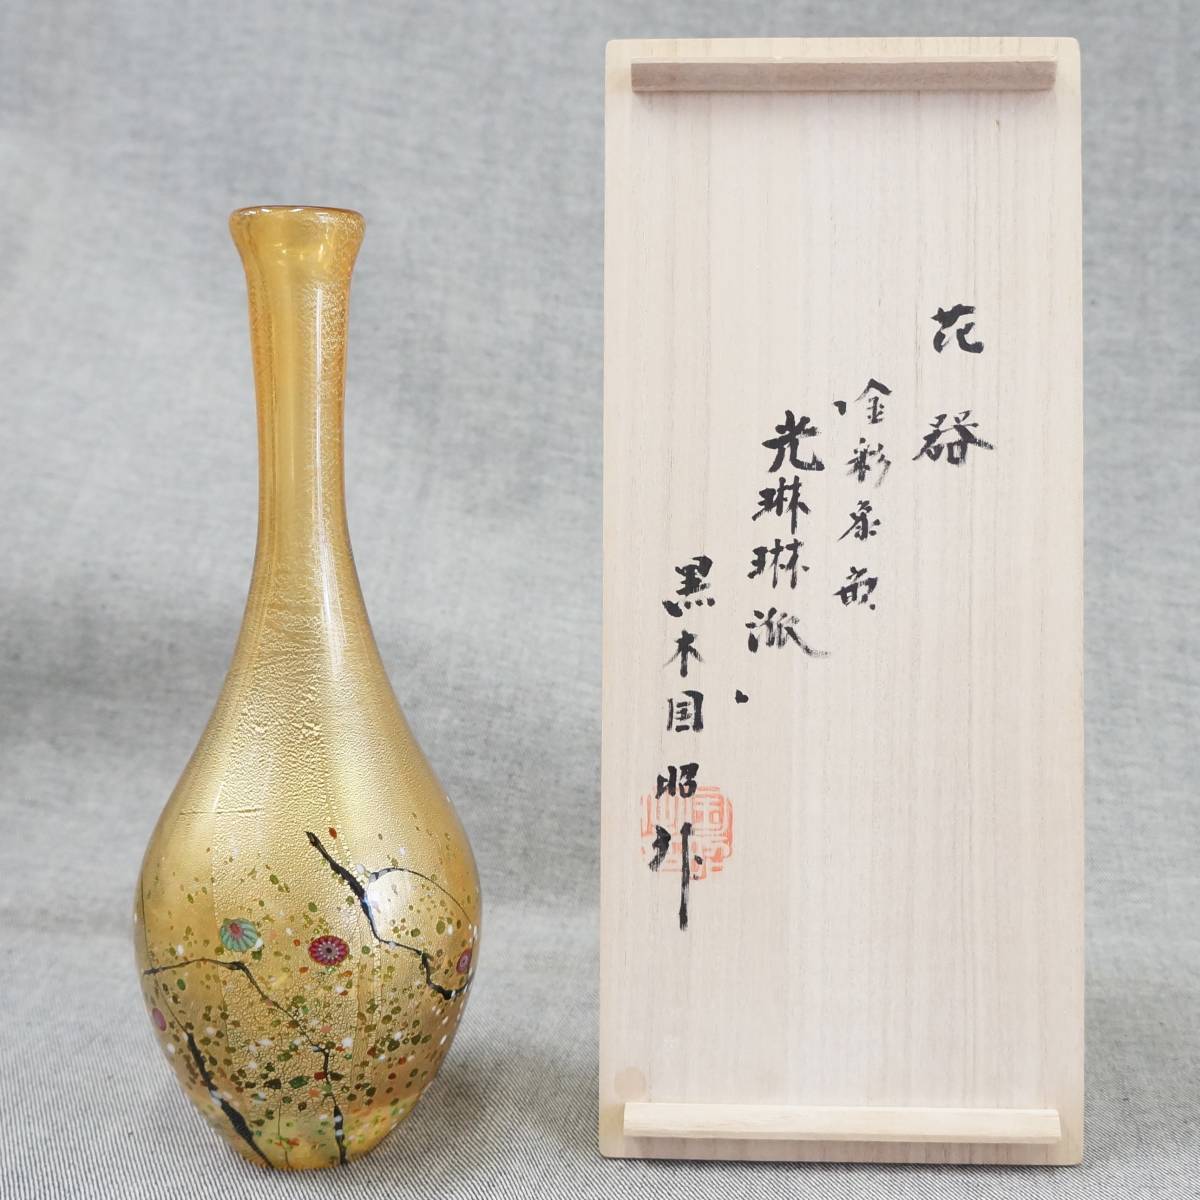 花器
金彩象嵌
光琳琳派
黒木国昭作